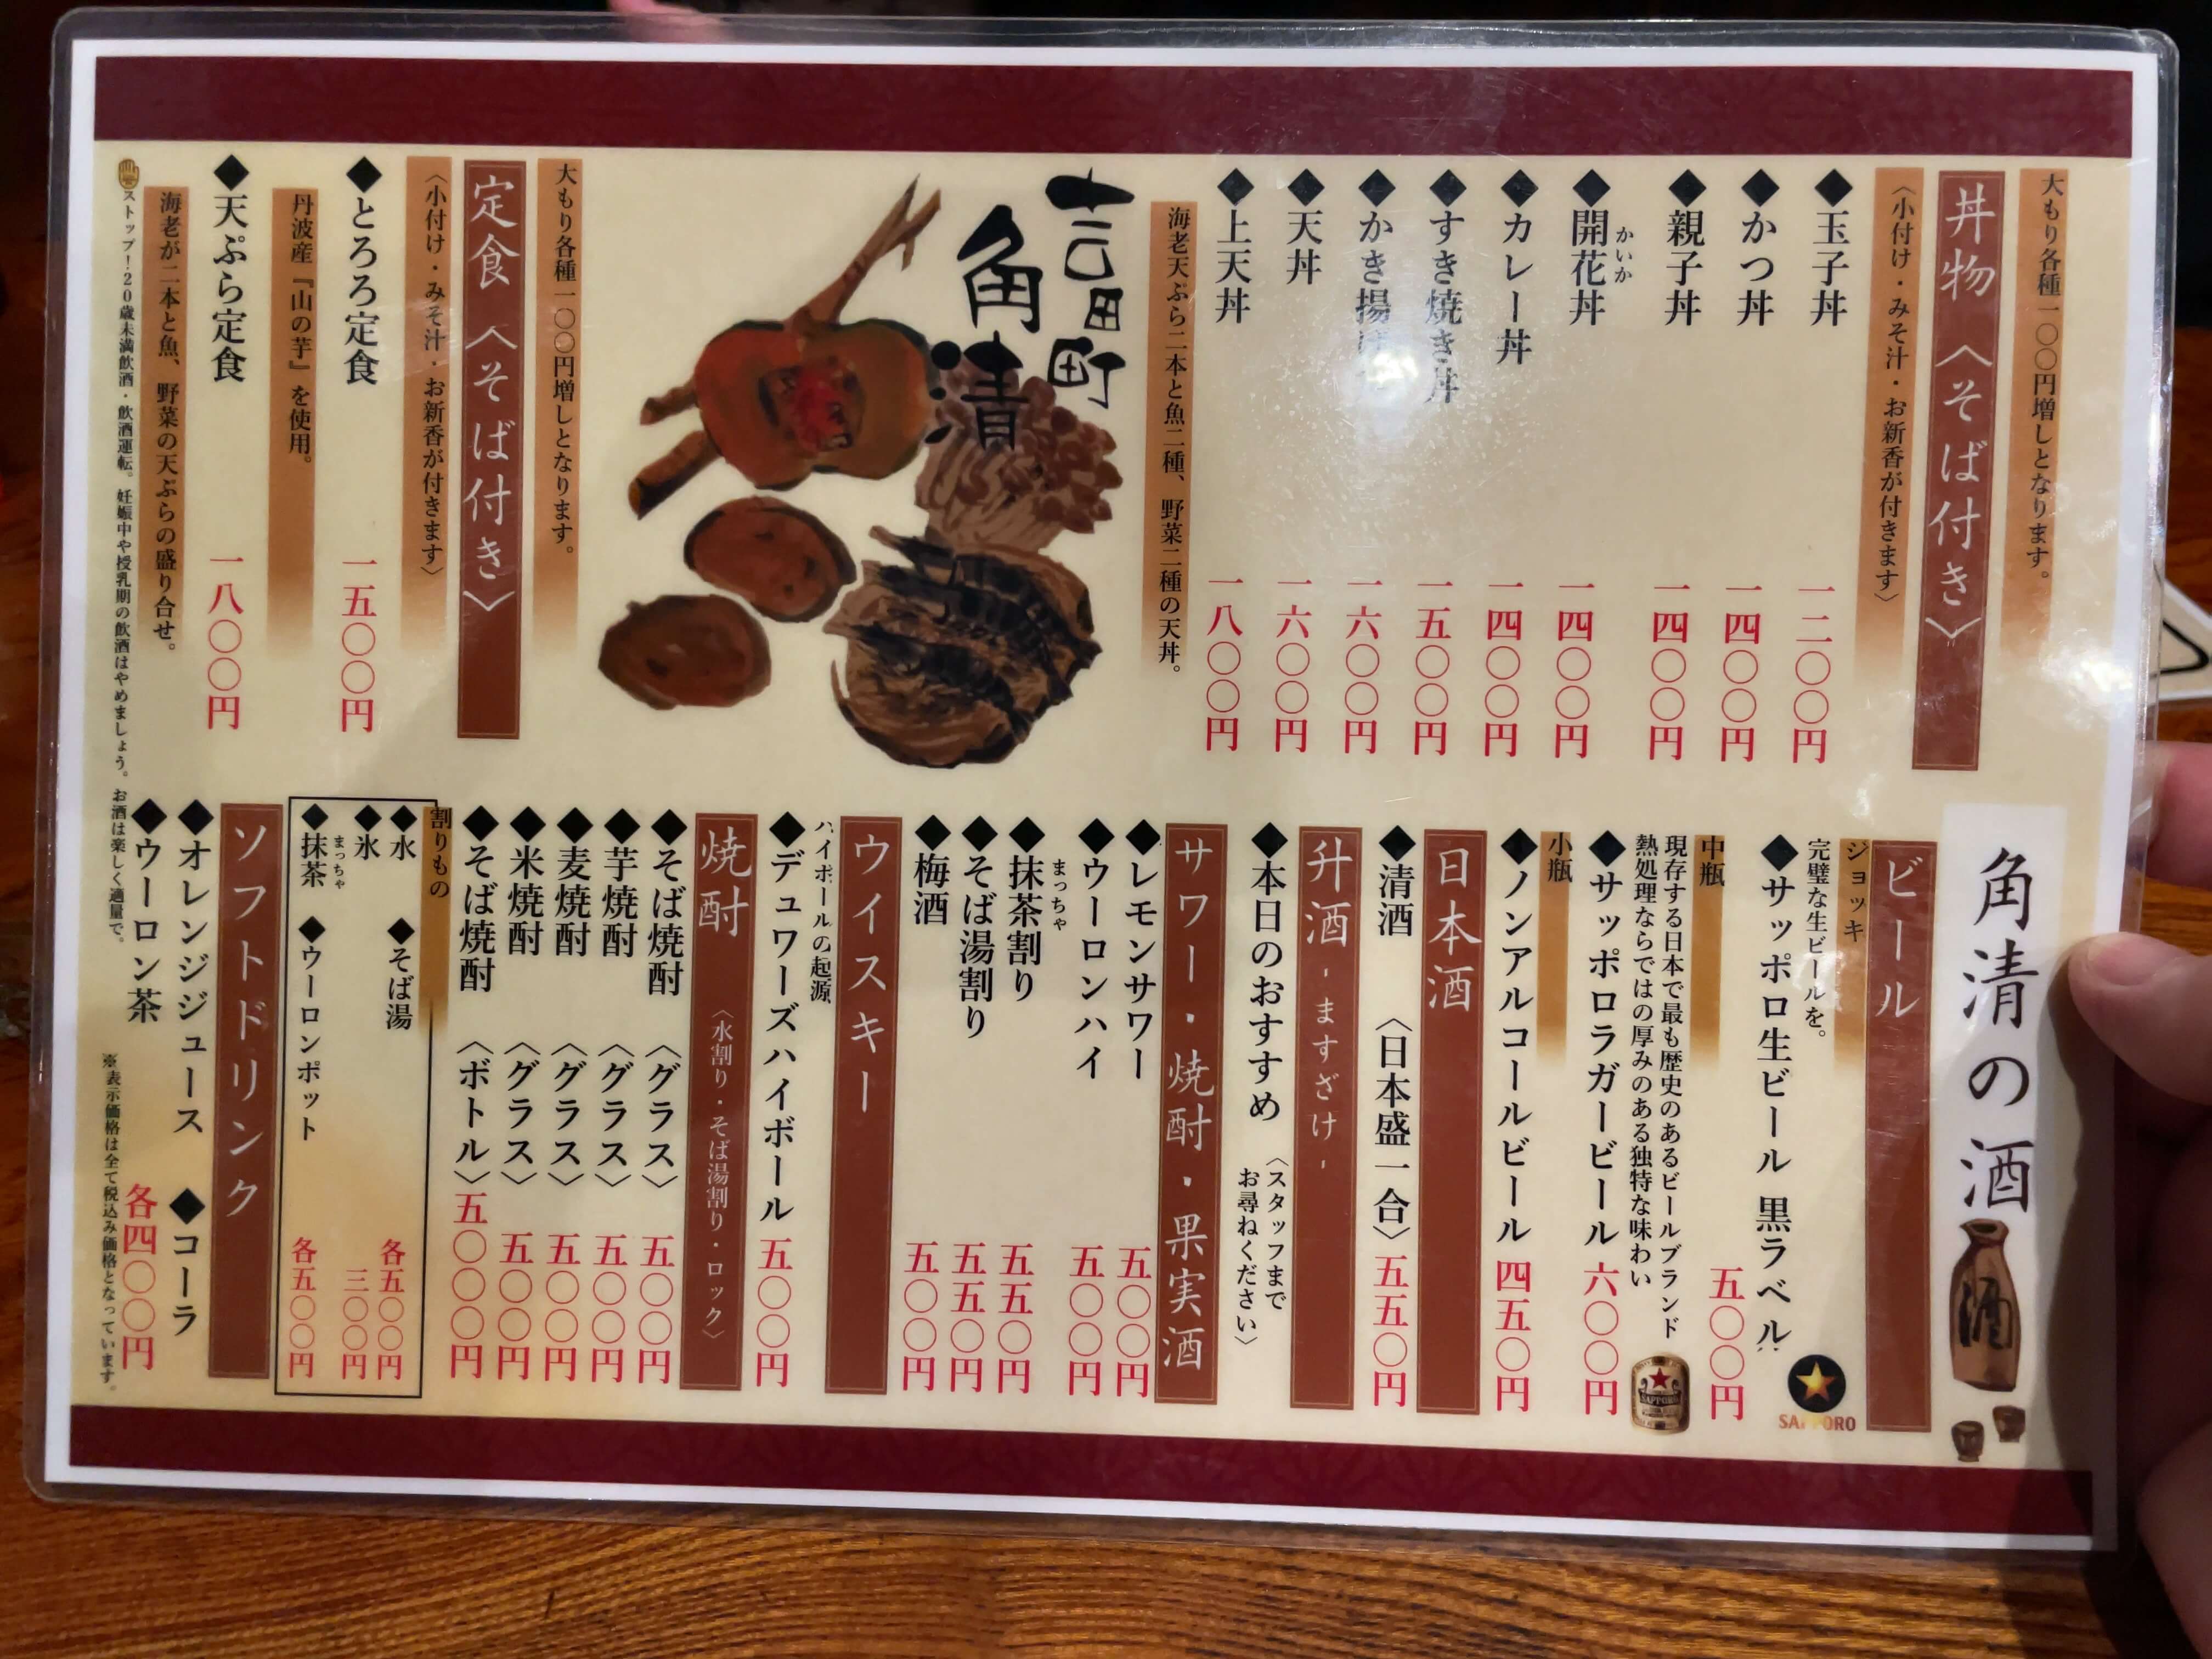 大もり各種一〇〇円増しとなります。
丼物〈そば付き〉
〈小付け・みそ汁・お新香が付きます〉
◆玉子丼 一二〇〇円
◆かつ丼 一四〇〇円
◆親子丼 一四〇〇円
かいか
◆開花丼 一四〇〇円
◆カレー丼 一四〇〇円
◆すき焼き丼 一五〇〇円
◆かき揚げ丼 一六〇〇円
◆天丼 一六〇〇円
◆上天丼 一八〇〇円
海老天ぷら二本と魚二種、野菜二種の天丼。
吉田町
角清
大もり各種一〇〇円増しとなります。
定食〈そば付き〉
〈小付け・みそ汁・お新香が付きます〉
◆とろろ定食 一五〇〇円
丹波産『山の芋』を使用。
◆天ぷら定食 一八〇〇円
海老が二本と魚、野菜の天ぷらの盛り合せ。
角清の酒
酒
ビール
ジョッキ
完璧な生ビールを。
◆サッポロ生ビール 黒ラベル
五〇〇円
SAPPORO
中瓶
現存する日本で最も歴史のあるビールブランド
熱処理ならではの厚みのある独特な味わい
SAPPORO
◆サッポロラガービール 六〇〇円
小瓶
◆ノンアルコールビール 四五〇円
日本酒
◆清酒 〈日本盛一合〉 五五〇円
升酒 - ますざけ -
◆本日のおすすめ 〈スタッフまで
お尋ねください〉
サワー・焼酎・果実酒
◆レモンサワー 五〇〇円
◆ウーロンハイ 五〇〇円
まっちゃ
◆抹茶割り 五五〇円
◆そば湯割り 五五〇円
◆梅酒 五〇〇円
ウイスキー
ハイボールの起源
◆デュワーズハイボール 五〇〇円
焼酎 〈水割り・そば湯割り・ロック〉
◆そば焼酎 〈グラス〉 五〇〇円
◆芋焼酎 〈グラス〉 五〇〇円
◆麦焼酎 〈グラス〉 五〇〇円
◆米焼酎 〈グラス〉 五〇〇円
◆そば焼酎 〈ボトル〉 五〇〇〇円
割りもの
◆水 ◆そば湯 各五〇〇円
◆氷 三〇〇円
まっちゃ
◆抹茶 ◆ウーロンポット 各五〇〇円
ソフトドリンク
◆オレンジジュース ◆コーラ
◆ウーロン茶 各四〇〇円
ストップ!20歳未満飲酒・飲酒運転。妊娠中や授乳期の飲酒はやめましょう。お酒は楽しく適量で。
※表示価格は全て税込み価格となっています。